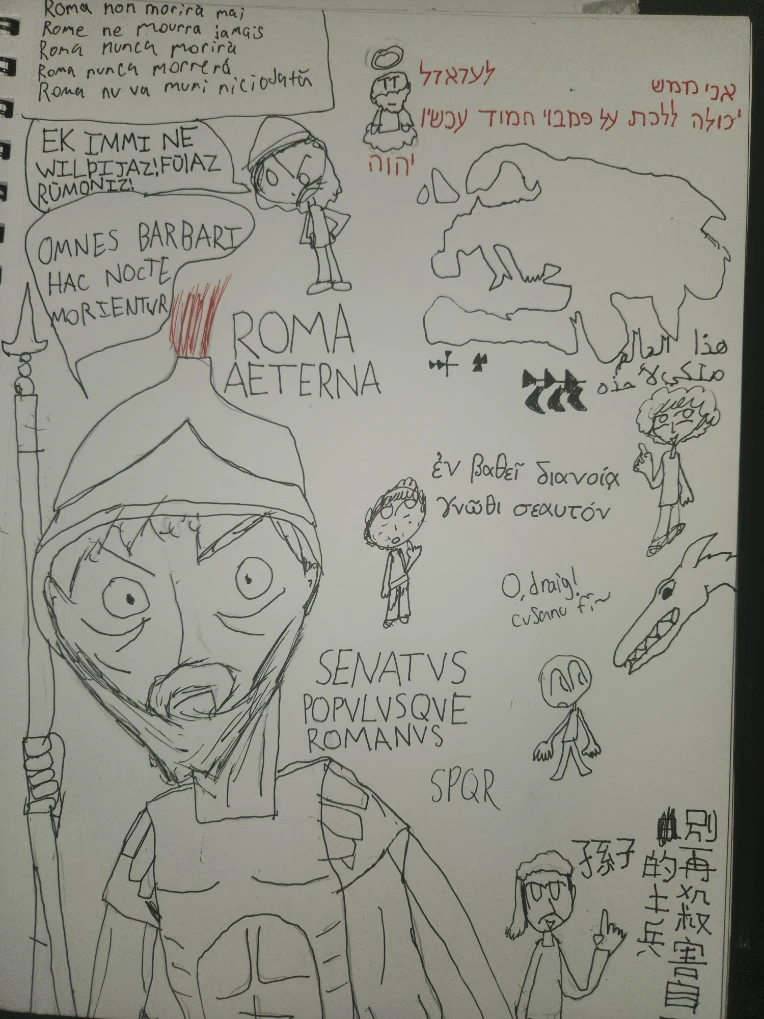 Roma non morirà mai
Rome ne mourra jamais
Roma nunca morirá
Roma nunca morrerá
Roma nu va muri niciodată
EK IMMI NE
WILÞIJAZ! FULAZ
RŪMŌNIZ!
OMNES BARBARI
HAC NOCTE
MORIENTVR
ROMA
AETERNA
לעזאזל
אני ממש
יכולה ללכת על פמבוי חמוד עכשיו
יהוה
هذا العالم
ἐν βαθεῖ διανοίᾳ
γνῶθι σεαυτόν
O, draig!
cusanu fi~
SENATVS
POPVLVSQVE
ROMANVS
SPQR
孫子
別再殺害自
的士兵